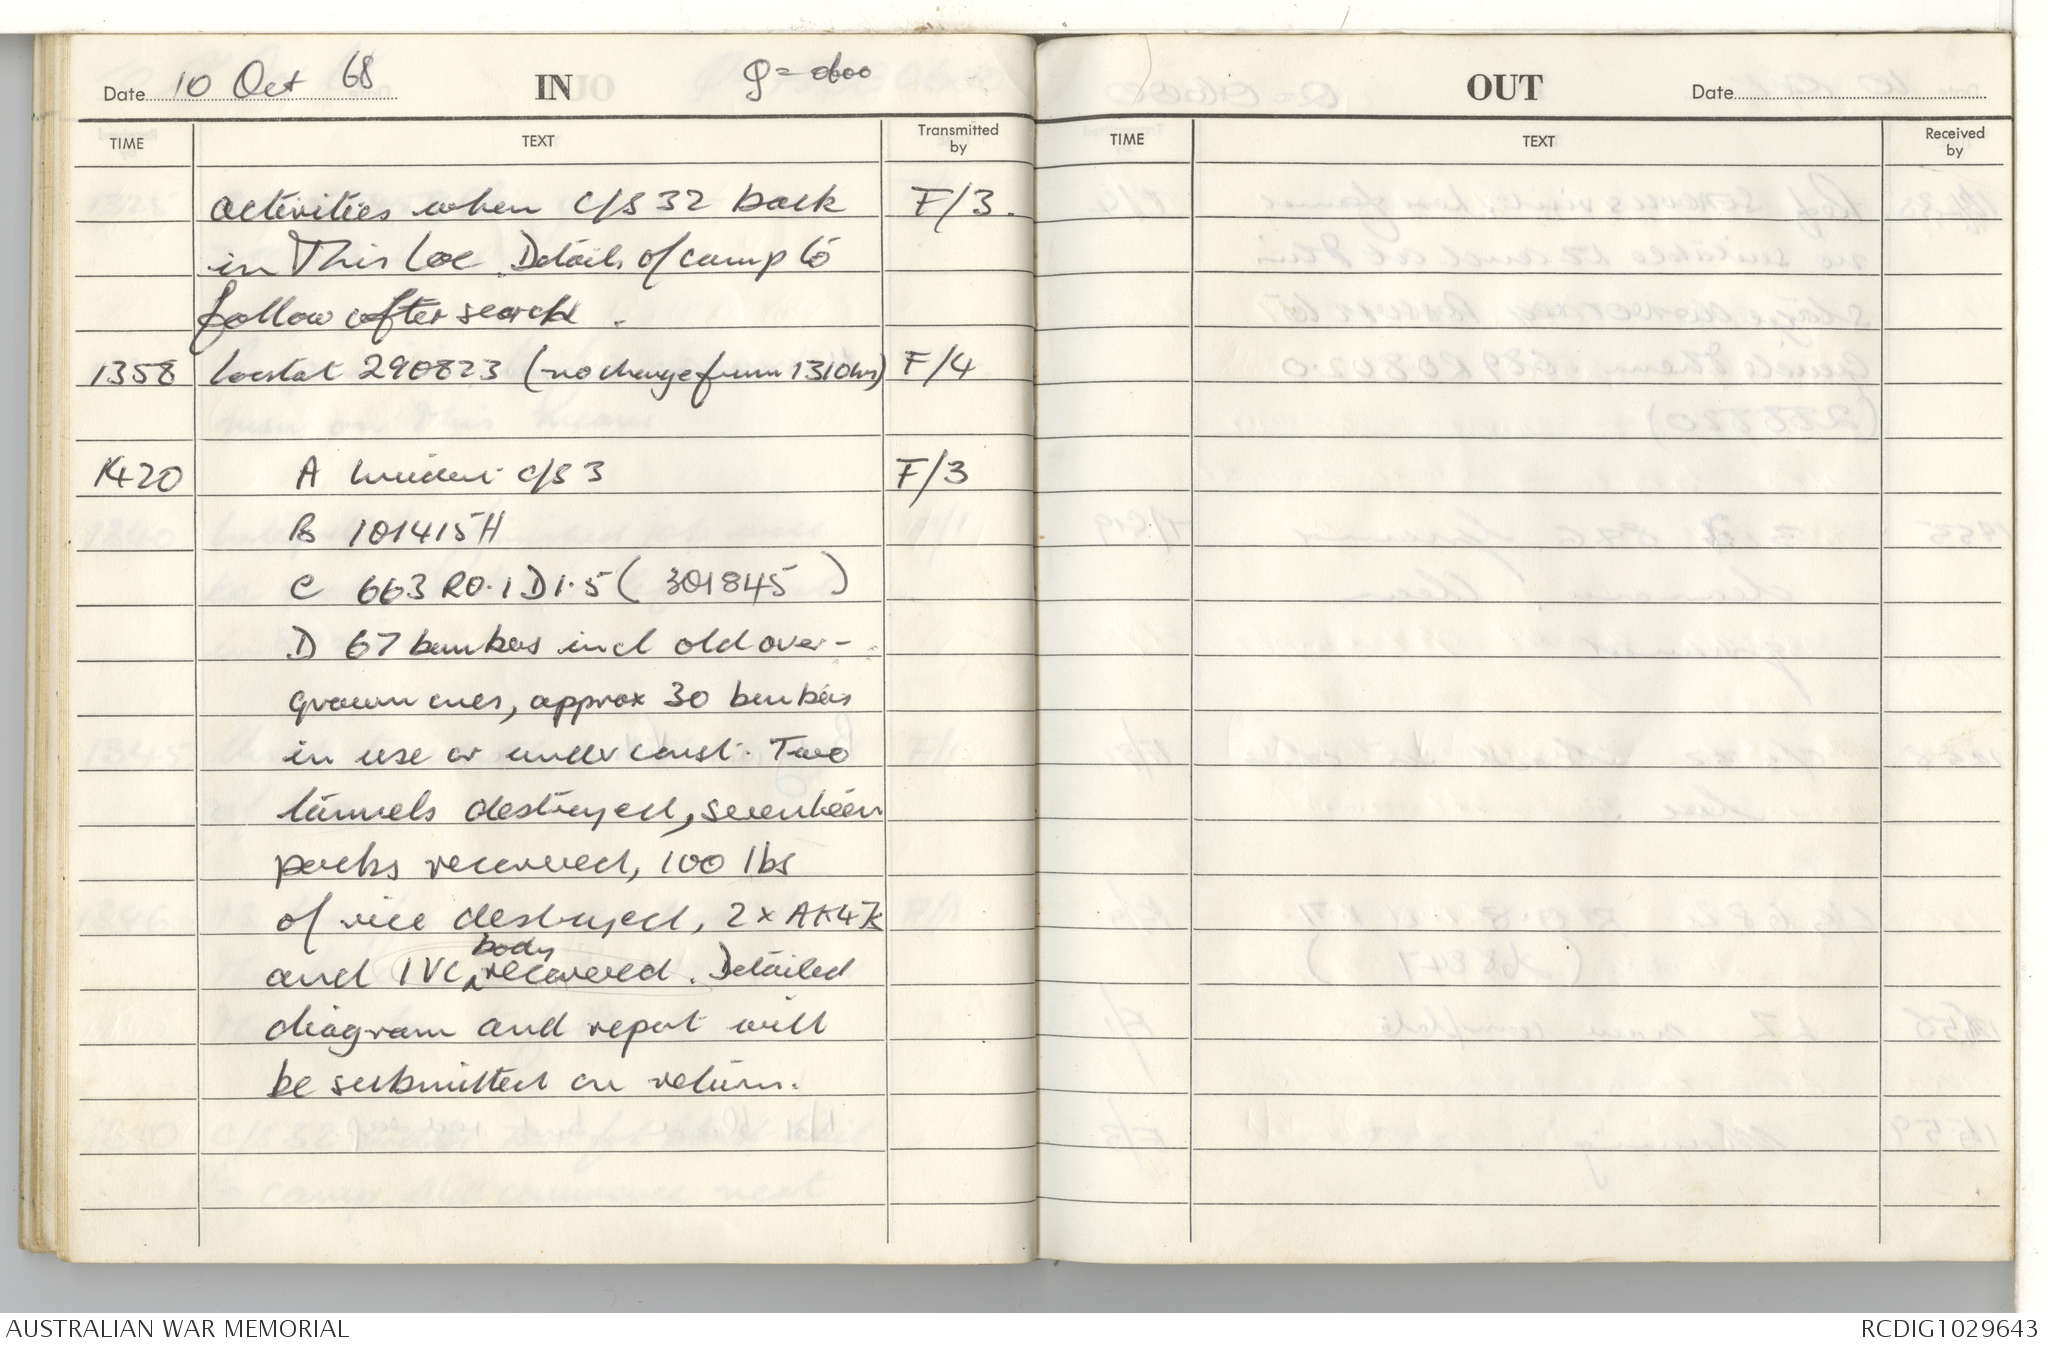 Date 10 Oct 68 IN Q = 0600
TIME TEXT Transmitted by
activities when C/S 32 back F/3.
in This loc. Details of camp to
follow after search.
1358 locstat 290823 (no change from 1310hrs) F/4
1420 A Incident C/S 3 F/3
B 101415H
C 663 R0.1 D1.5 (301845)
D 67 bunkers incl old over-
grown ones, approx 30 bunkers
in use or under const. Two
tunnels destroyed, seventeen
packs recovered, 100 lbs
of rice destroyed, 2 x AK47
and 1 VC body recovered. Detailed
diagram and report will
be submitted on return.
OUT Date
TIME TEXT Received by
AUSTRALIAN WAR MEMORIAL RCDIG1029643